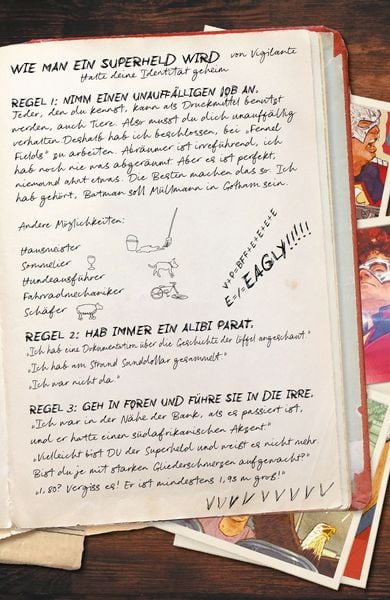 WIE MAN EIN SUPERHELD WIRD von Vigilante
Halte deine Identität geheim
REGEL 1: NIMM EINEN UNAUFFÄLLIGEN JOB AN.
Jeder, den du kennst, kann als Druckmittel benutzt
werden, auch Tiere. Also musst du dich unauffällig
verhalten. Deshalb hab ich beschlossen, bei „Fennel
Fields" zu arbeiten. Abräumer ist irreführend, ich
hab noch nie was abgeräumt. Aber es ist perfekt,
niemand ahnt etwas. Die Besten machen das so. Ich
hab gehört, Batman soll Müllmann in Gotham sein.
Andere Möglichkeiten:
Hausmeister
Sommelier
Hundeausführer
Fahrradmechaniker
Schäfer
V+P=BFF+E+E+E+E
E=/=EAGLY!!!!!
REGEL 2: HAB IMMER EIN ALIBI PARAT.
„Ich hab eine Dokumentation über die Geschichte der Löffel angeschaut."
„Ich hab am Strand Sanddollar gesammelt."
„Ich war nicht da."
REGEL 3: GEH IN FOREN UND FÜHRE SIE IN DIE IRRE.
„Ich war in der Nähe der Bank, als es passiert ist,
und er hatte einen südafrikanischen Akzent."
„Vielleicht bist DU der Superheld und weißt es nicht mehr.
Bist du je mit starken Gliederschmerzen aufgewacht?"
„1,80? Vergiss es! Er ist mindestens 1,95 m groß!"